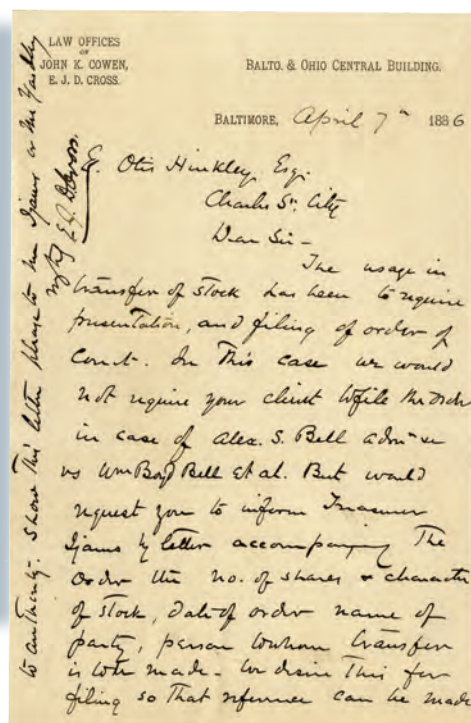 LAW OFFICES
OF
JOHN K. COWEN,
E. J. D. CROSS.
BALTO. & OHIO CENTRAL BUILDING.
BALTIMORE, April 7th 1886
E. Otis Hinkley Esq.
Charles St. City
Dear Sir -
The usage in
transfer of stock has been to require
presentation, and filing of order of
Court. In this case we would
not require your client to file the order
in case of Alex. S. Bell adm'
vs Wm Boyd Bell et al. But would
request you to inform Treasurer
Ijams by letter accompanying the
order the no. of shares & character
of stock, date of order name of
party, person to whom transfer
is to be made - We desire this for
filing so that reference can be made
to authority. Show this letter please to Mr Ijams or Mr Yardley
E. J. D. Cross.